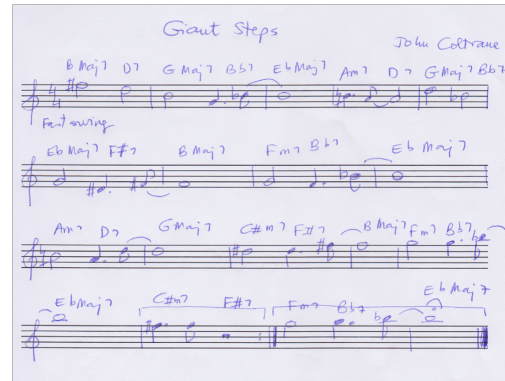 Giant Steps
John Coltrane
B Maj7 D7 G Maj7 Bb7 Eb Maj7 Am7 D7 G Maj7 Bb7
4/4
Fast swing
Eb Maj7 F#7 B Maj7 Fm7 Bb7 Eb Maj7
Am7 D7 G Maj7 C#m7 F#7 B Maj7 Fm7 Bb7
Eb Maj7 C#m7 F#7 Fm7 Bb7 Eb Maj7